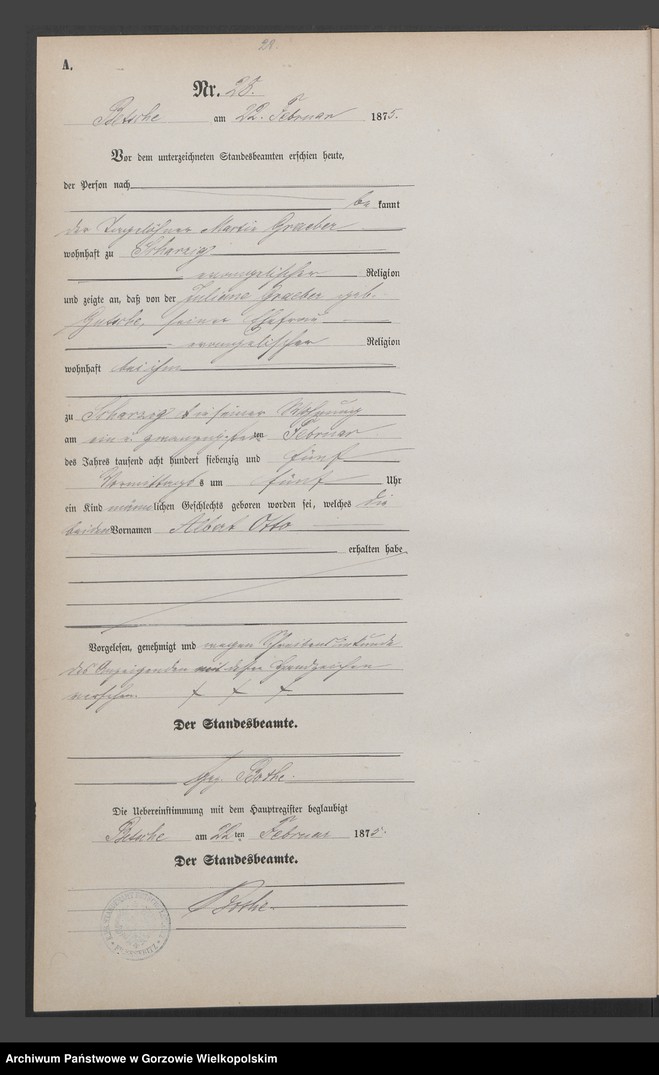 28.
A.
Nr. 28.
Betsche am 22. Februar 1875.
Vor dem unterzeichneten Standesbeamten erschien heute,
der Person nach
be kannt
der Tagelöhner Martin Graeber
wohnhaft zu Scharzig
evangelischer Religion
und zeigte an, daß von der Juliane Graeber geb.
Gutsche, seiner Ehefrau
evangelischer Religion
wohnhaft bei ihm
zu Scharzig in seiner Wohnung
am ein u zwanzigsten ten Februar
des Jahres tausend acht hundert siebenzig und fünf
Vormittags um fünf Uhr
ein Kind männlichen Geschlechts geboren worden sei, welches die
beiden Vornamen Albert Otto
erhalten habe.
Vorgelesen, genehmigt und wegen Schreibensunkunde
des Anzeigenden mit dessen Handzeichen
versehen. + + +
Der Standesbeamte.
gez. Bothe.
Die Uebereinstimmung mit dem Hauptregister beglaubigt
Betsche am 22 ten Februar 1875.
Der Standesbeamte.
Bothe.
Archiwum Państwowe w Gorzowie Wielkopolskim